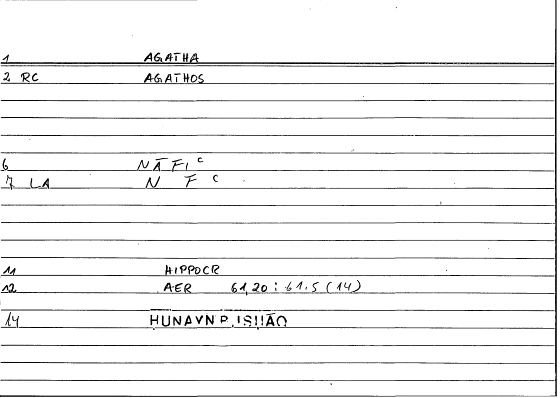 1 AGATHA
2 RC AGATHOS
6 NĀFIᶜ
7 LA N F C
11 HIPPOCR
12 AER 61,20 : 61.5 (14)
14